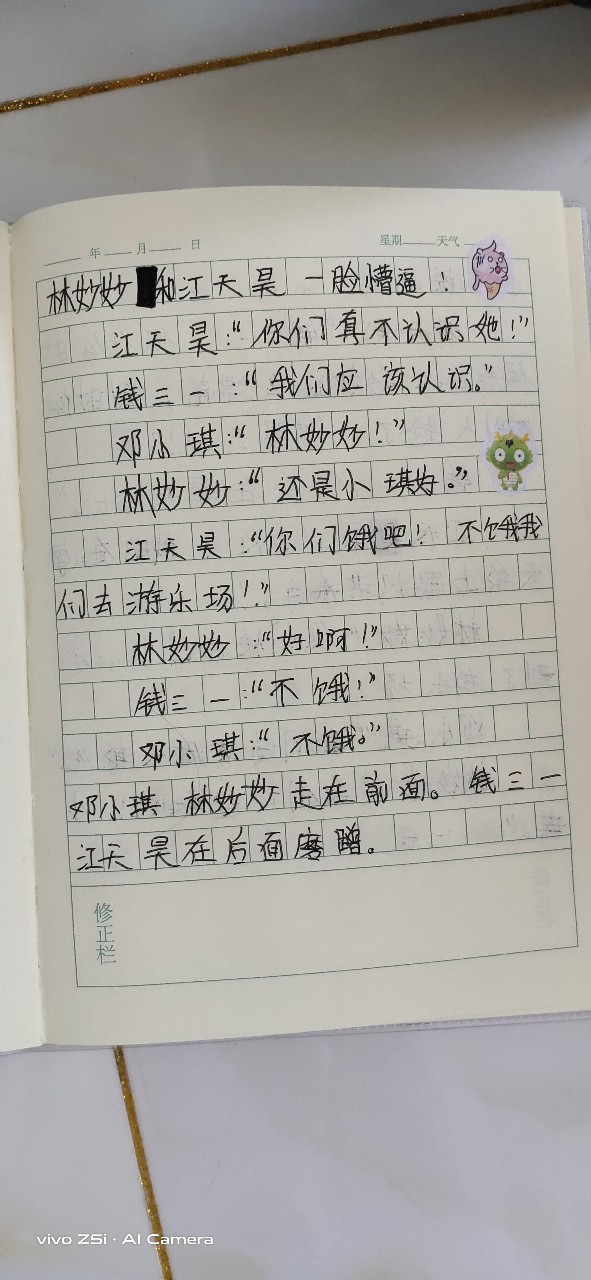 年 月 日 星期 天气
林妙妙 和江天昊 一脸懵逼！
江天昊：“你们真不认识她！”
钱三一：“我们应该认识。”
邓小琪：“林妙妙！”
林妙妙：“还是小琪好。”
江天昊：“你们饿吧！不饿我我
们去游乐场！”
林妙妙：“好啊！”
钱三一：“不饿！”
邓小琪：“不饿。”
邓小琪 林妙妙走在前面。钱三一
江天昊在后面磨蹭。
修正栏
vivo Z5i · AI Camera